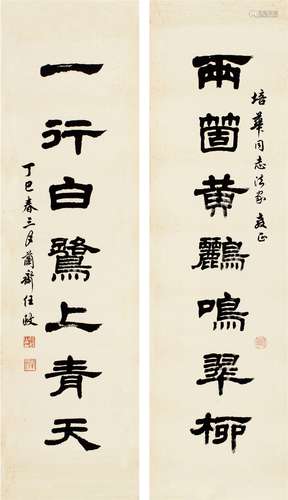 兩箇黄鸝鳴翠柳
培華同志法家教正
一行白鷺上青天
丁巳春三月蘭齋任政